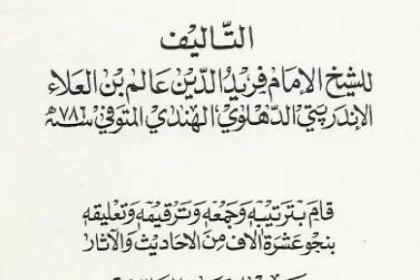 التّاليف
للشيخ الإمام فريد الدّين عالم بن العلاء
الإندربتي الدّهلوي الهندي المتوفي سنة ٧٨٦ھ
قام بترتيبه وجمعه وترقيمه وتعليقه
بنحو عشرة آلاف من الأحاديث والآثار